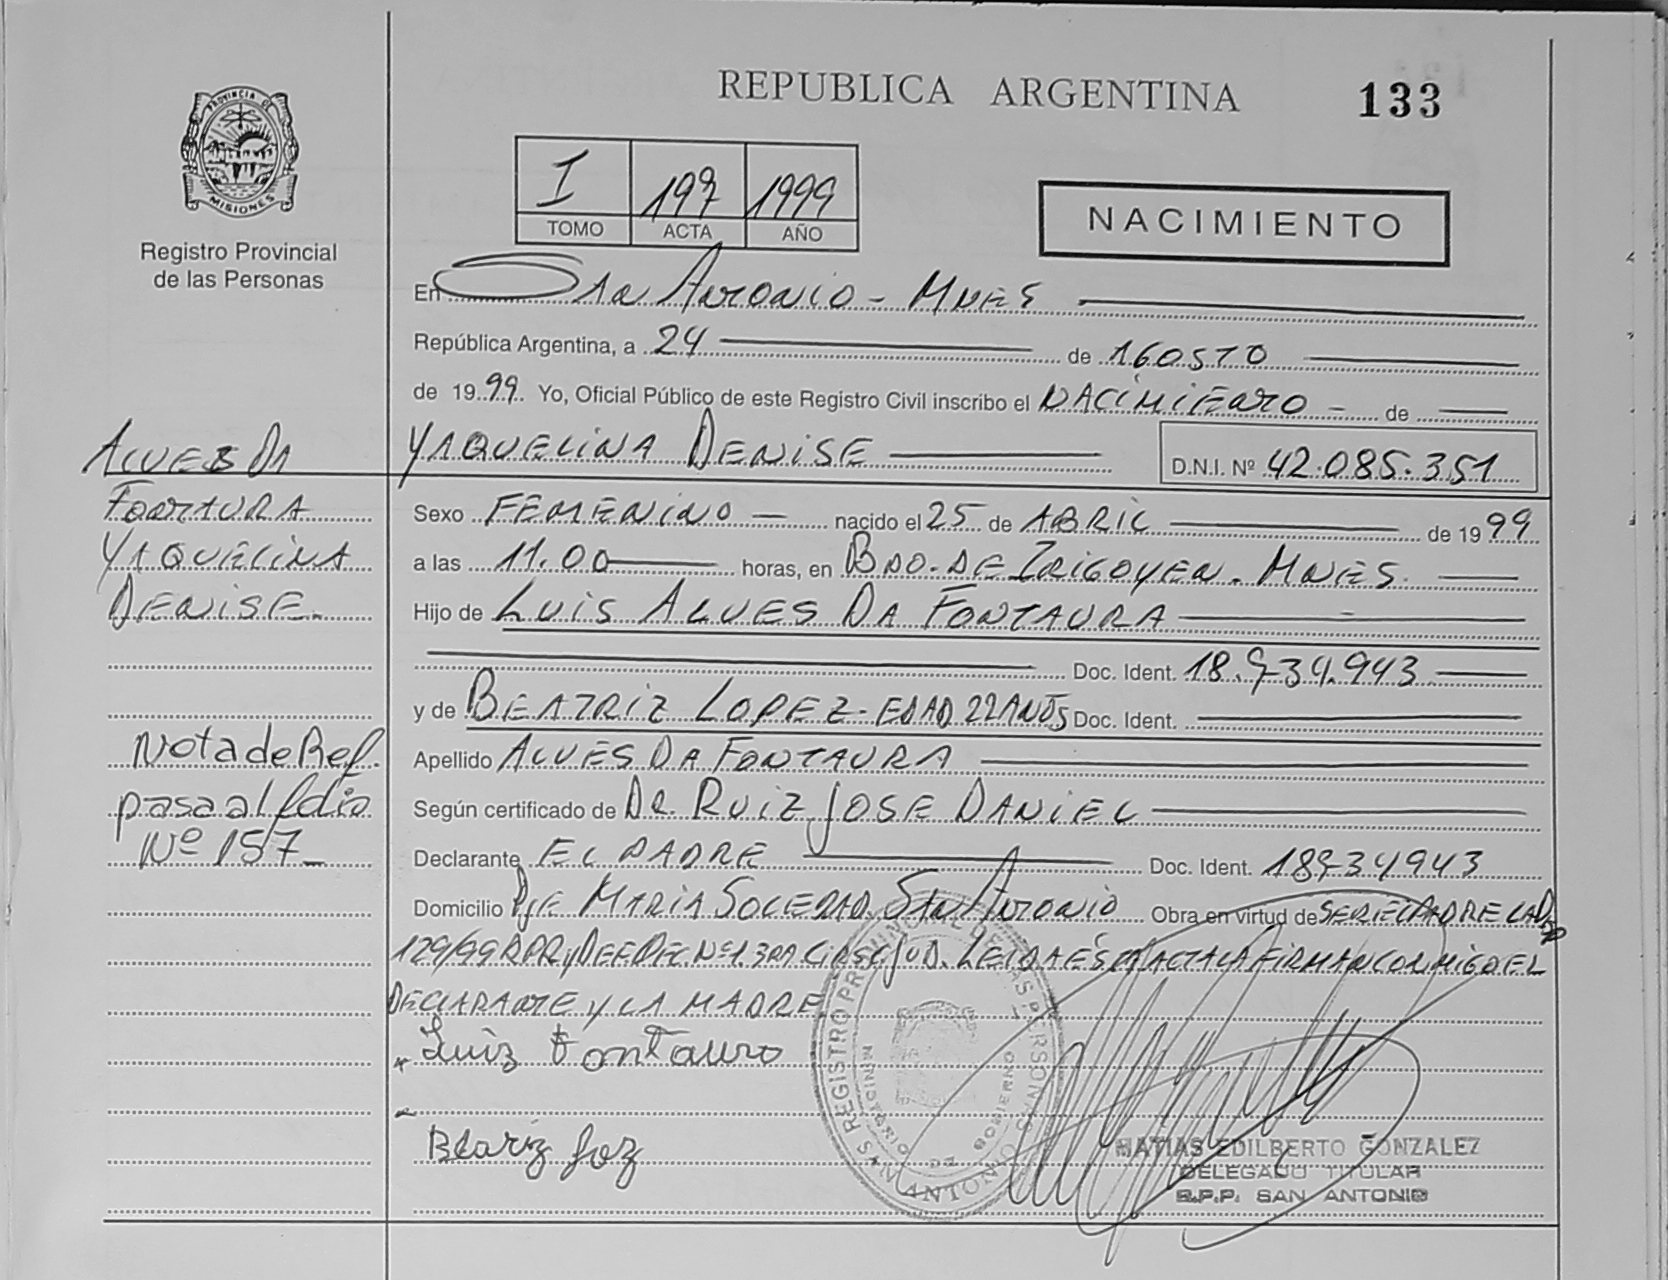 REPUBLICA ARGENTINA
133
PROVINCIA DE
MISIONES
Registro Provincial
de las Personas
I 197 1999
TOMO ACTA AÑO
NACIMIENTO
En San Antonio - MNES
República Argentina, a 24 de AGOSTO
de 1999 Yo, Oficial Público de este Registro Civil inscribo el NACIMIENTO - de
YAQUELINA DENISE D.N.I. Nº 42.085.351
ALVES DA
FONTAURA
YAQUELINA
DENISE.
Sexo FEMENINO - nacido el 25 de ABRIL de 1999
a las 11.00 horas, en BDO. DE IRIGOYEN. MNES.
Hijo de LUIS ALVES DA FONTAURA
Doc. Ident. 18.734.943
y de BEATRIZ LOPEZ - EDAD 22 AÑOS Doc. Ident.
Apellido ALVES DA FONTAURA
Nota de Ref.
pasa al folio
Nº 157
Según certificado de DR. RUIZ JOSE DANIEL
Declarante EL PADRE Doc. Ident. 18734943
Domicilio PJE MARIA SOLEDAD. SAN ANTONIO Obra en virtud de SER EL PADRE
129/99 RPP Y DEF Nº 1 3RA CIRSC JUD. LEIDA ESTA ACTA LA FIRMAN CONMIGO EL
DECLARANTE Y LA MADRE
Luiz Fontauro
REGISTRO PROVINCIAL DE LAS PERSONAS
MINISTERIO DE GOBIERNO
SAN ANTONIO
MATIAS EDILBERTO GONZALEZ
DELEGADO TITULAR
R.P.P. SAN ANTONIO